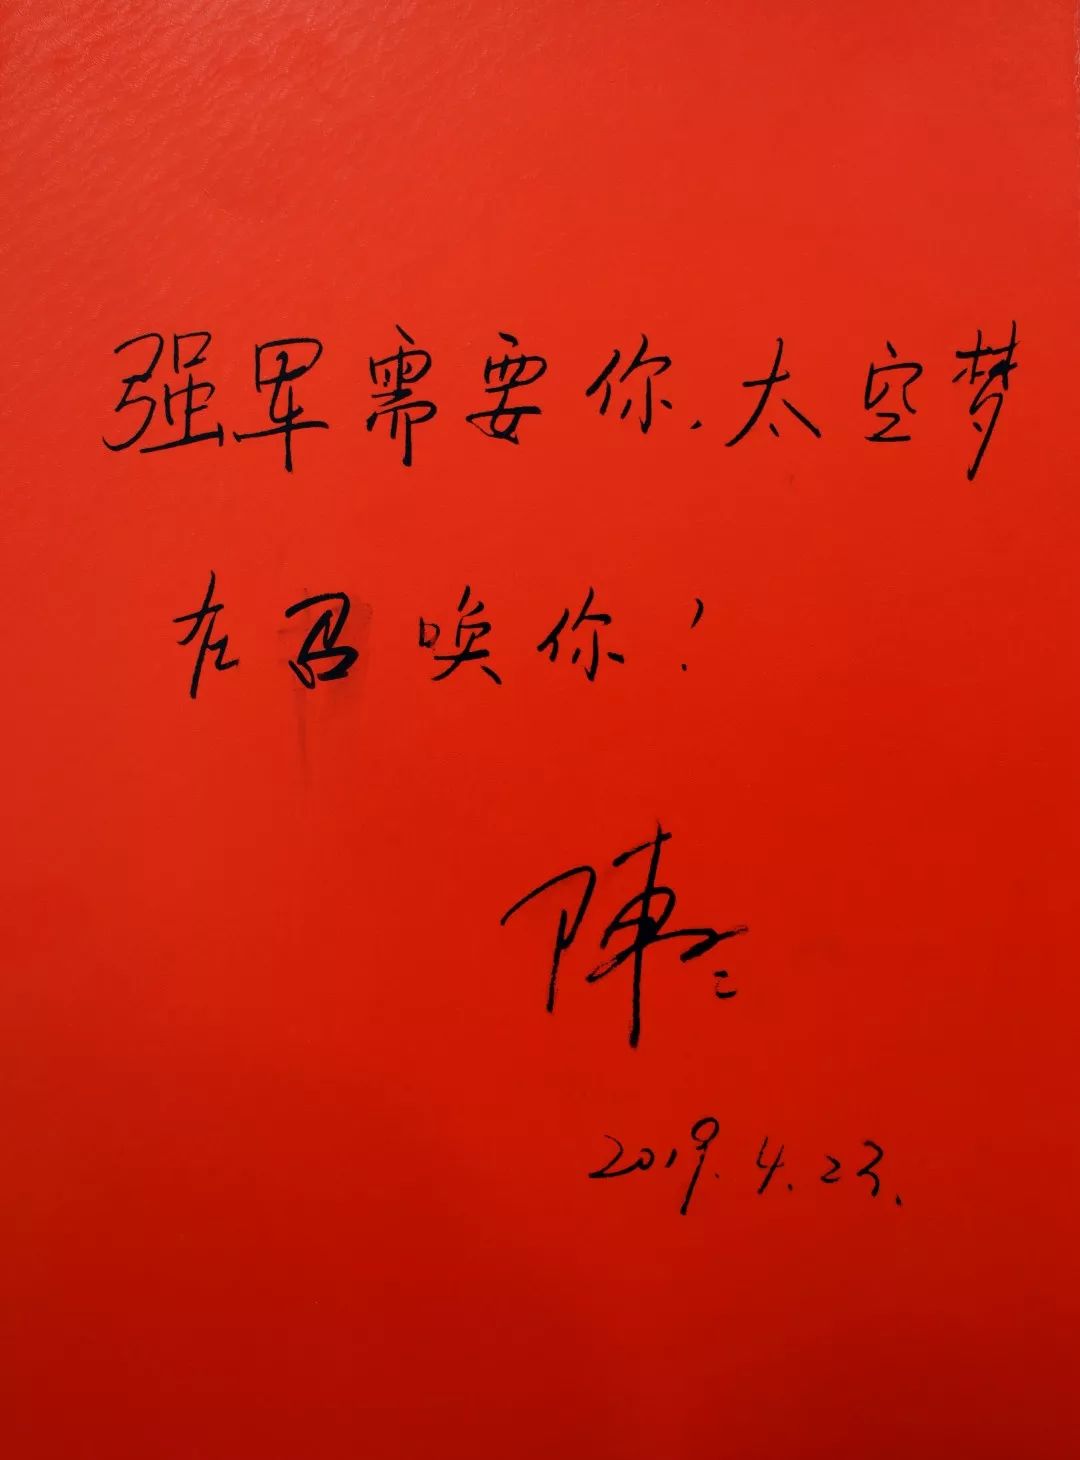 强军需要你，太空梦
在召唤你！
陳冬
2019.4.23.